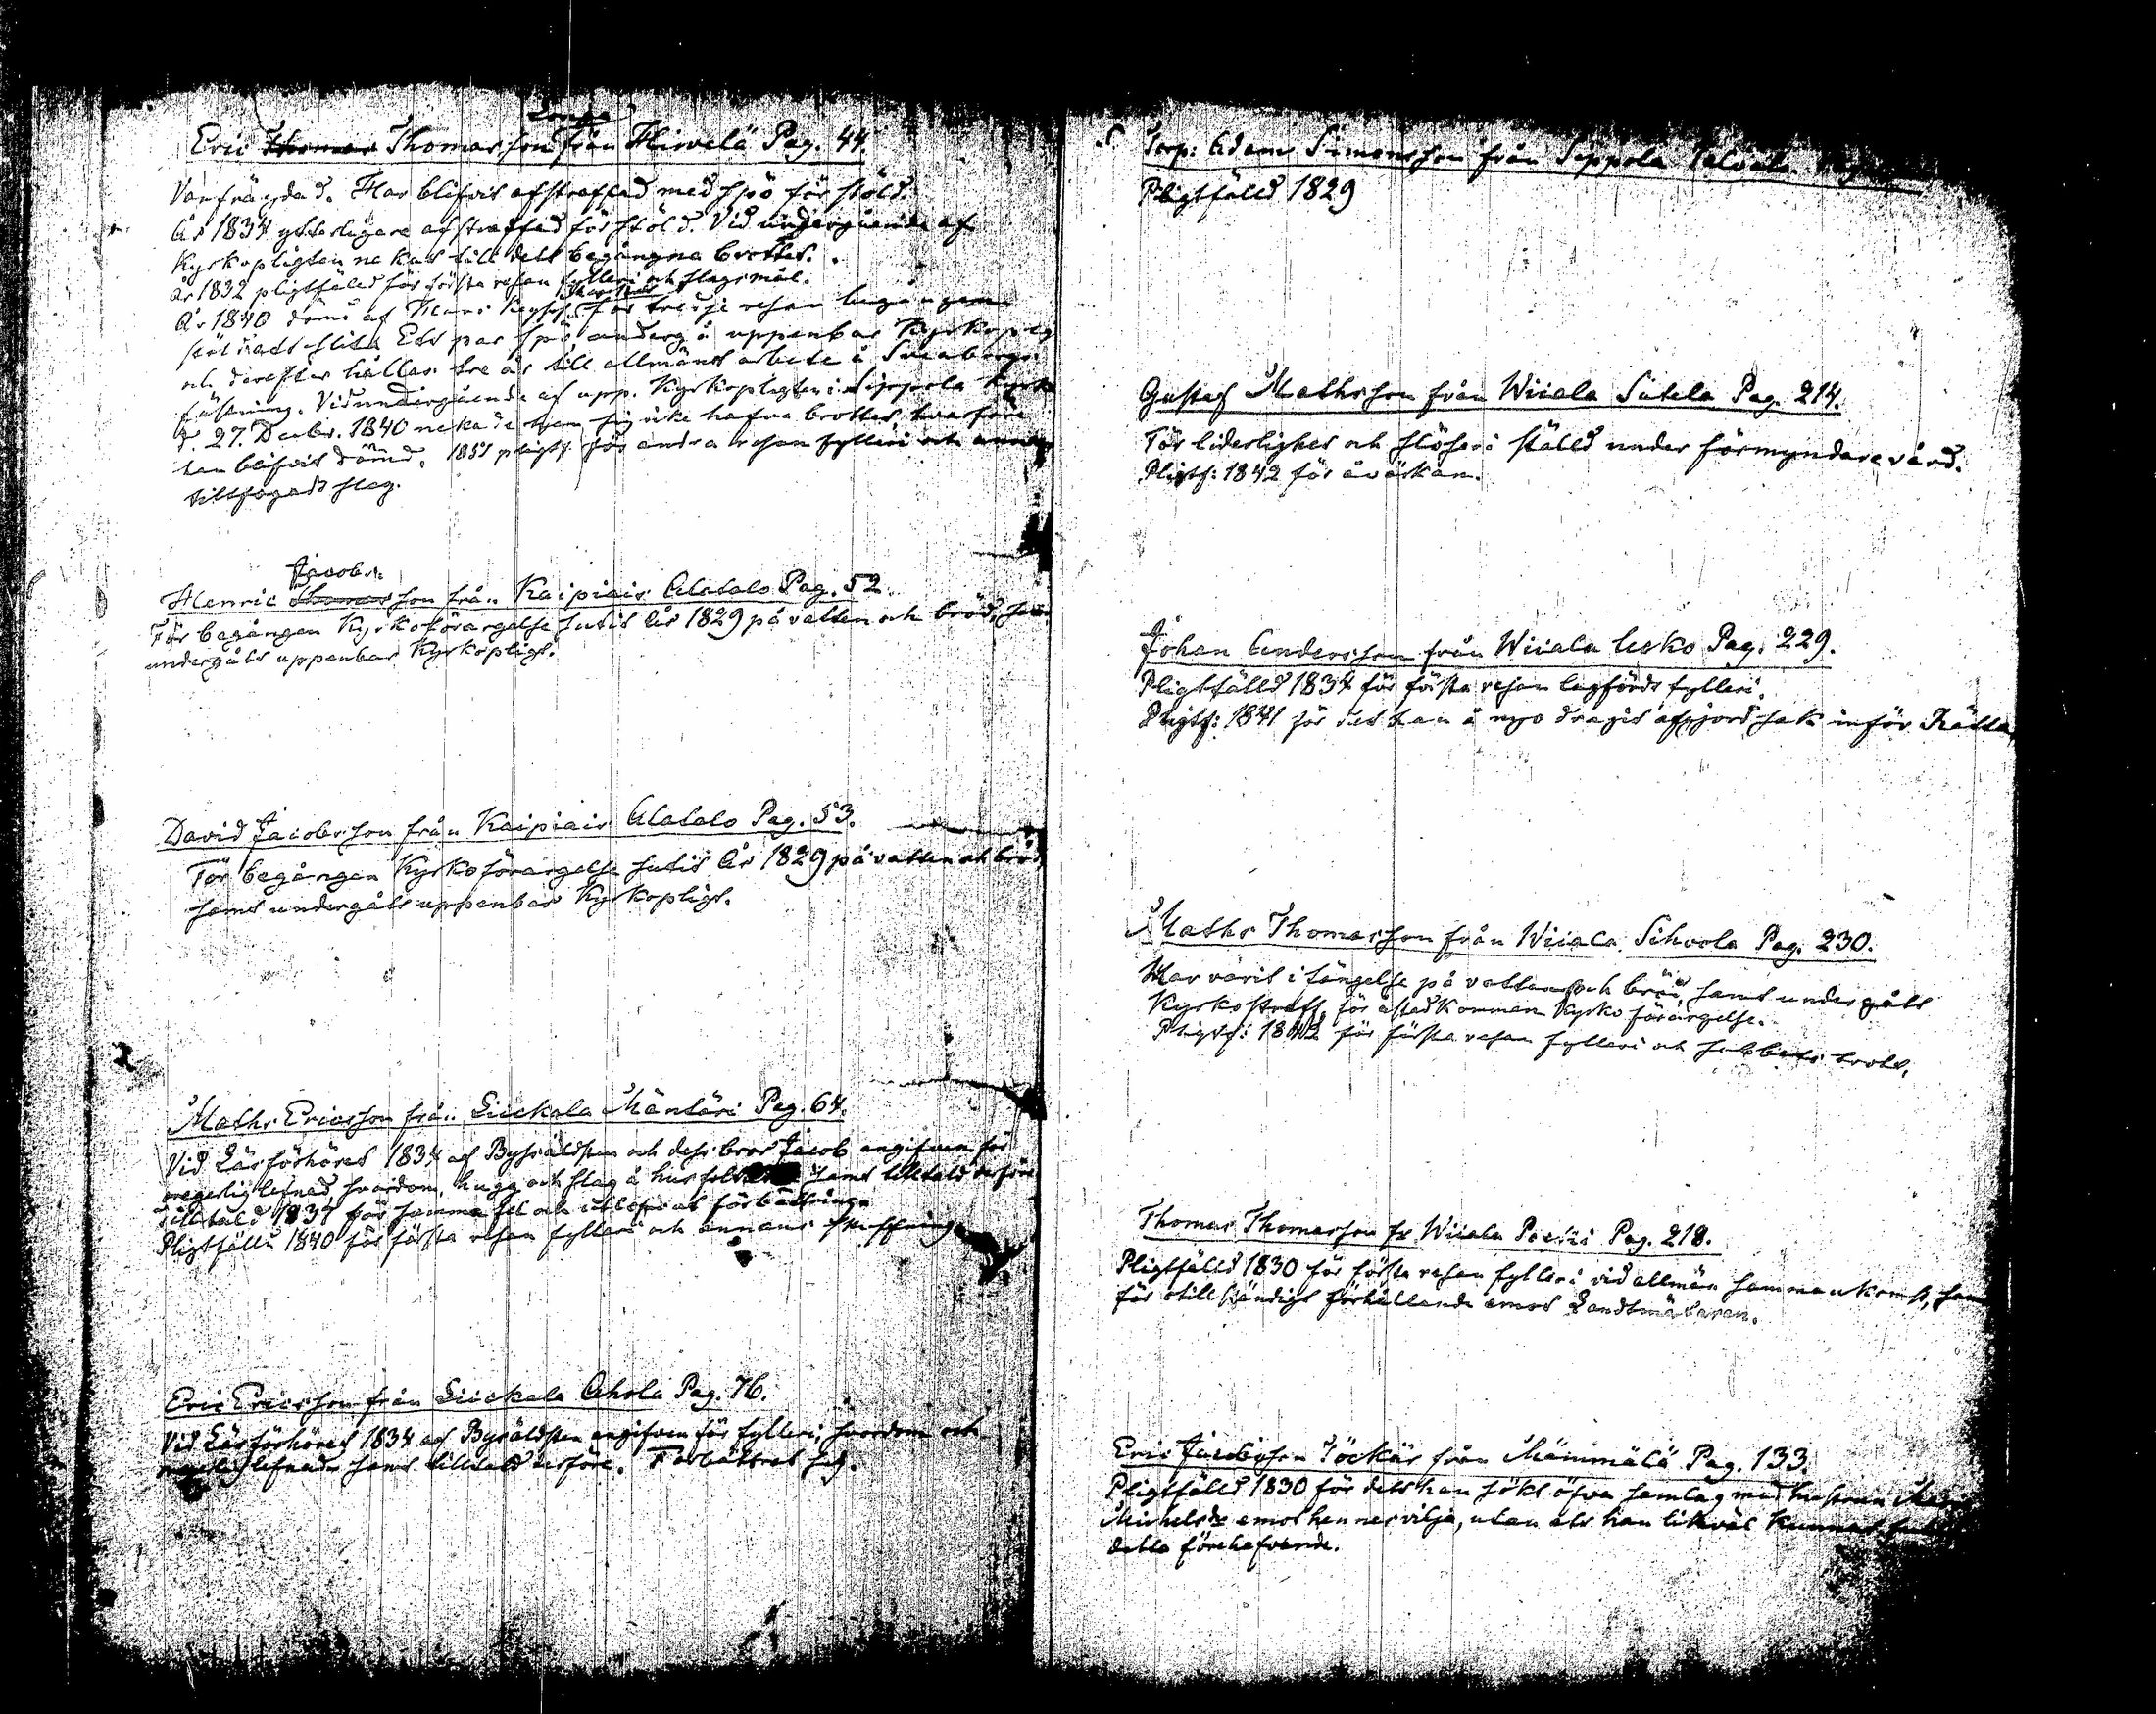 Eric Thomasson från Hirvelä Pag. 44.
Vanfräydad. Har blifvit afstraffad med spö för stöld.
År 1834 ytterligare afstraffad för stöld. Vid undergående af
Kyrkopligten nekat till det begångna brottet.
År 1832 pligtfälld för första resan fylleri och slagsmål.
År 1840 dömd af för tredje resan begången
stöld att slita Ett par spö, undergå uppenbar Kyrkopligt
och derefter hållas tre år till allmänt arbete å Sveaborgs
fästning. Vid undergående af upp. Kyrkopligten i Sippola Kyrka
d. 27. Decbr. 1840 nekade han sig icke hafva brottet, hvarföre
han blifvit dömd. 1851 pligtf. för andra resan fylleri och annan
tillfogadt slag.
Jacobs
Henric son från Kaipiais Alatalo Pag. 52.
För begången Kyrkoförargelse sutit År 1829 på vatten och bröd, samt
undergått uppenbar Kyrkopligt.
David Jacobsson från Kaipiais Alatalo Pag. 53.
För begången Kyrkoförargelse sutit År 1829 på vatten och bröd,
samt undergått uppenbar Kyrkopligt.
Maths Ericsson från Liickala Mäntäri Pag. 64.
Vid Läsförhöret 1834 af Byåldsten och dess bror Jacob angifven för
oregerlig lefnad, svordom, hugg och slag å husfolk samt tilltald derföre
Tilltald 1837 för samma fel och utlofvat förbättring.
Pligtfälld 1840 för första resan fylleri och annans skuffning
Eric Ericsson från Liickala Ahola Pag. 76.
Vid Läsförhöret 1834 af Byåldsten angifven för fylleri, svordom och
lefnad samt tilltald derföre. Förbättrat sig.
Torp: Adam Simonsson från Sippola
Pligtfälld 1829
Gustaf Mathsson från Wiiala Sutela Pag. 214.
För liderlighet och slöseri ställd under förmyndarevård.
Pligtf: 1842 för åverkan.
Johan Andersson från Wiiala Usko Pag. 229.
Pligtfälld 1834 för första resan lagförde fylleri.
Pligtf: 1841 för det han å nyo dragit afgjord sak inför Rätta.
Maths Thomasson från Wiiala Sihvola Pag. 230.
Har varit i fängelse på vatten och bröd, samt undergått
Kyrkostraff, för åstadkommen Kyrkoförargelse.
Pligtf: 1842 för första resan fylleri och sabbats brott.
Thomas Thomasson fr Wiiala Pag. 218.
Pligtfälld 1830 för första resan fylleri vid allmän sammankomst, samt
för oskillständigt förhållande emot Landtmätaren.
Eric Jacobsson Töckär från Mämmälä Pag. 133.
Pligtfälld 1830 för det han sökt öfva samlag med hustrun
Michelsdr emot hennes vilja, utan att han likväl kunnat
detta förehafvande.